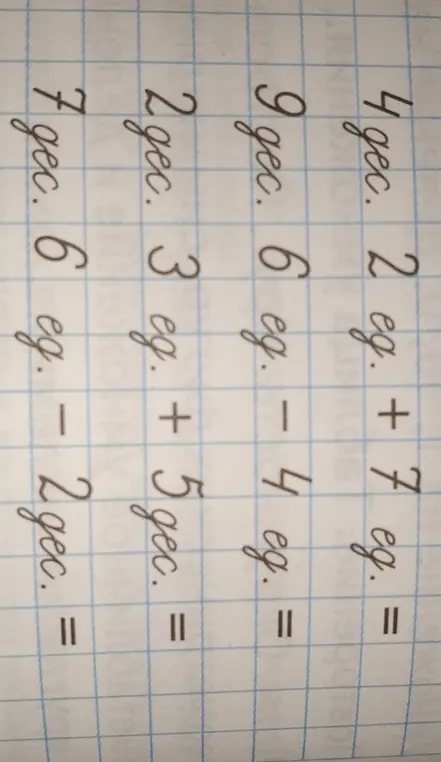 4 дес. 2 ед. + 7 ед. =
9 дес. 6 ед. - 4 ед. =
2 дес. 3 ед. + 5 дес. =
7 дес. 6 ед. - 2 дес. =